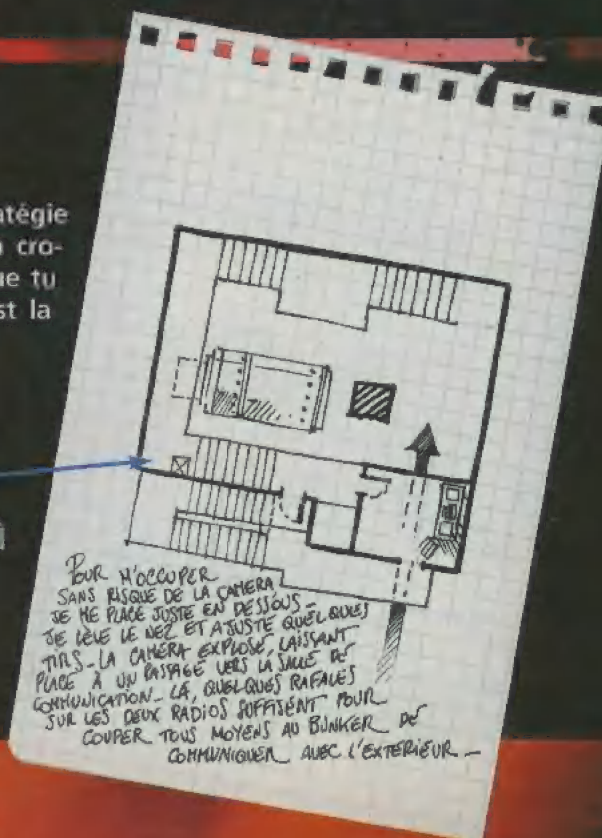 atégie
cro-
ue tu
st la
POUR M'OCCUPER
SANS RISQUE DE LA CAMERA
JE ME PLACE JUSTE EN DESSOUS -
JE LÈVE LE NEZ ET AJUSTE QUELQUES
TIRS - LA CAMÉRA EXPLOSE, LAISSANT
PLACE À UN PASSAGE VERS LA SALLE DE
COMMUNICATION - LÀ, QUELQUES RAFALES
SUR LES DEUX RADIOS SUFFISENT POUR
COUPER TOUS MOYENS AU BUNKER DE
COMMUNIQUER AVEC L'EXTERIEUR -